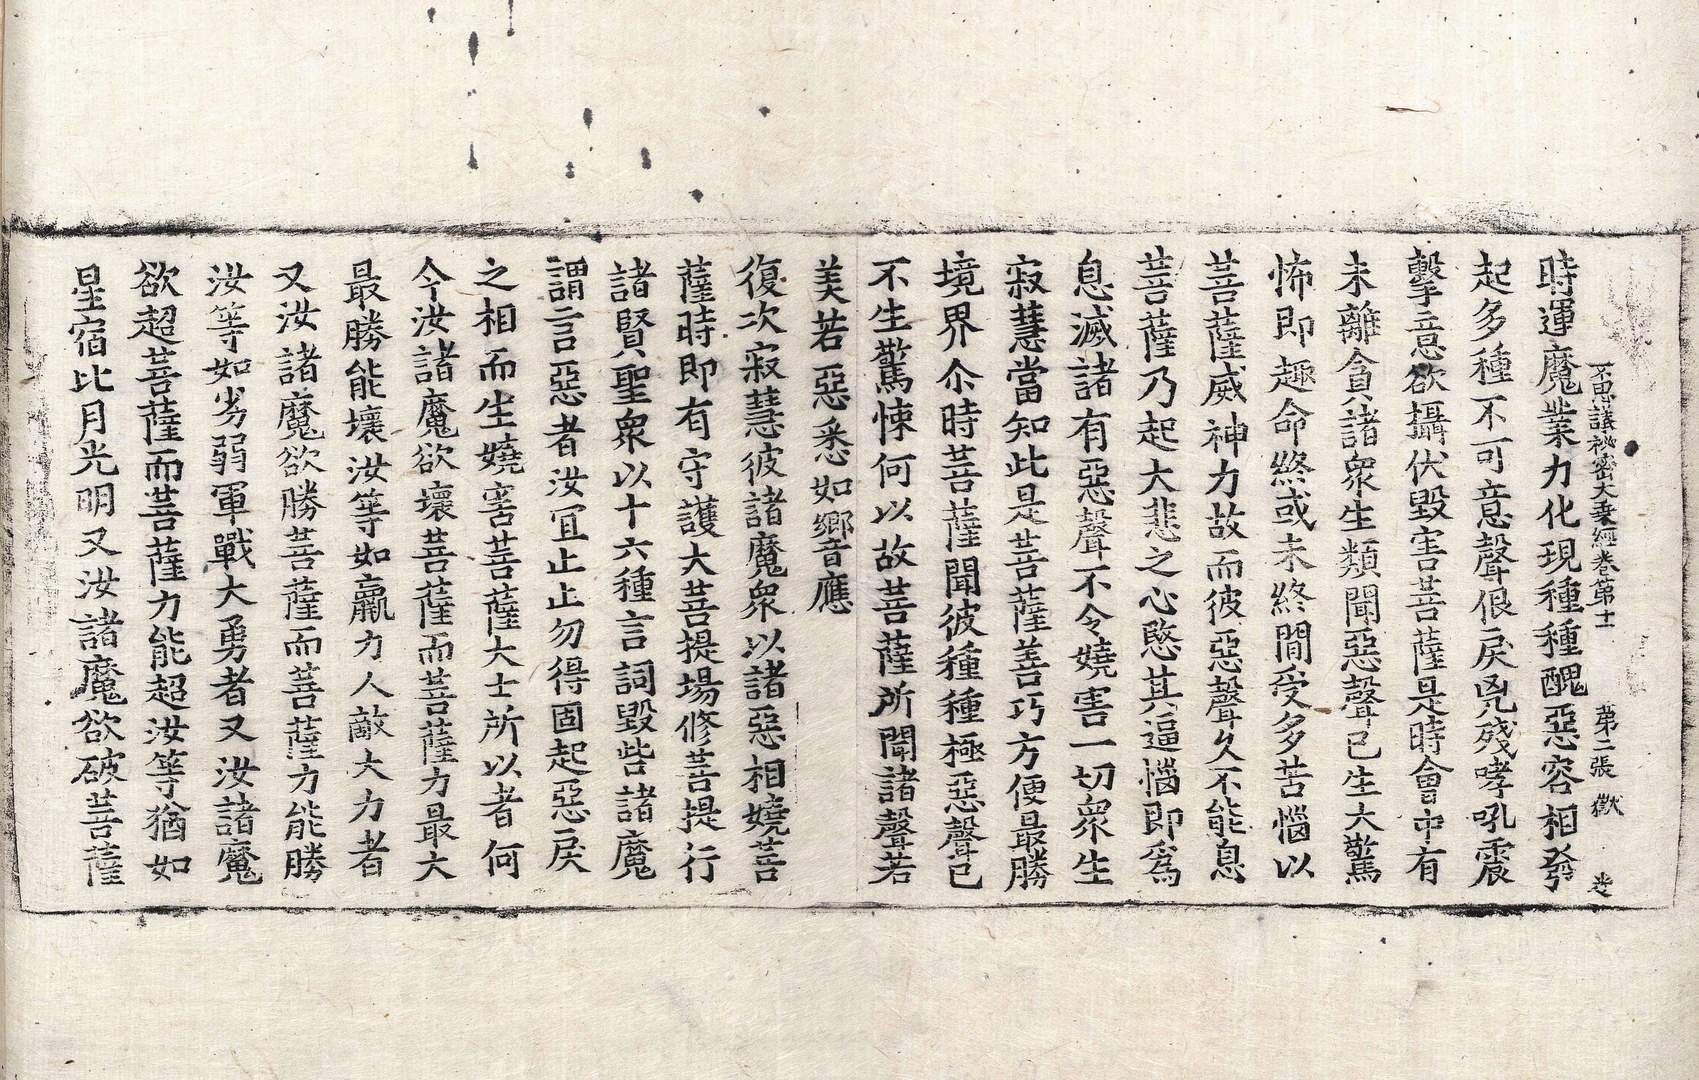 不思議祕密大乗經卷第十一 第二張 獻
時運魔業力化現種種醜惡容相發
起多種不可意聲佷戾兇殘哮吼震
擊意欲攝伏毀害菩薩是時會中有
未離貪諸衆生類聞惡聲已生大驚
怖即趣命終或未終間受多苦惱以
菩薩威神力故而彼惡聲久不能息
菩薩乃起大悲之心愍其逼惱即爲
息滅諸有惡聲不令嬈害一切衆生
寂慧當知此是菩薩善巧方便最勝
境界尒時菩薩聞彼種種極惡聲已
不生驚悚何以故菩薩所聞諸聲若
美若惡悉如嚮音應
復次寂慧彼諸魔衆以諸惡相嬈菩
薩時即有守護大菩提場修菩提行
諸賢聖衆以十六種言詞毀呰諸魔
謂言惡者汝冝止止勿得固起惡戾
之相而生嬈害菩薩大士所以者何
今汝諸魔欲壞菩薩而菩薩力最大
最勝能壞汝等如羸力人敵大力者
又汝諸魔欲勝菩薩而菩薩力能勝
汝等如劣弱軍戰大勇者又汝諸魔
欲超菩薩而菩薩力能超汝等猶如
星宿比月光明又汝諸魔欲破菩薩